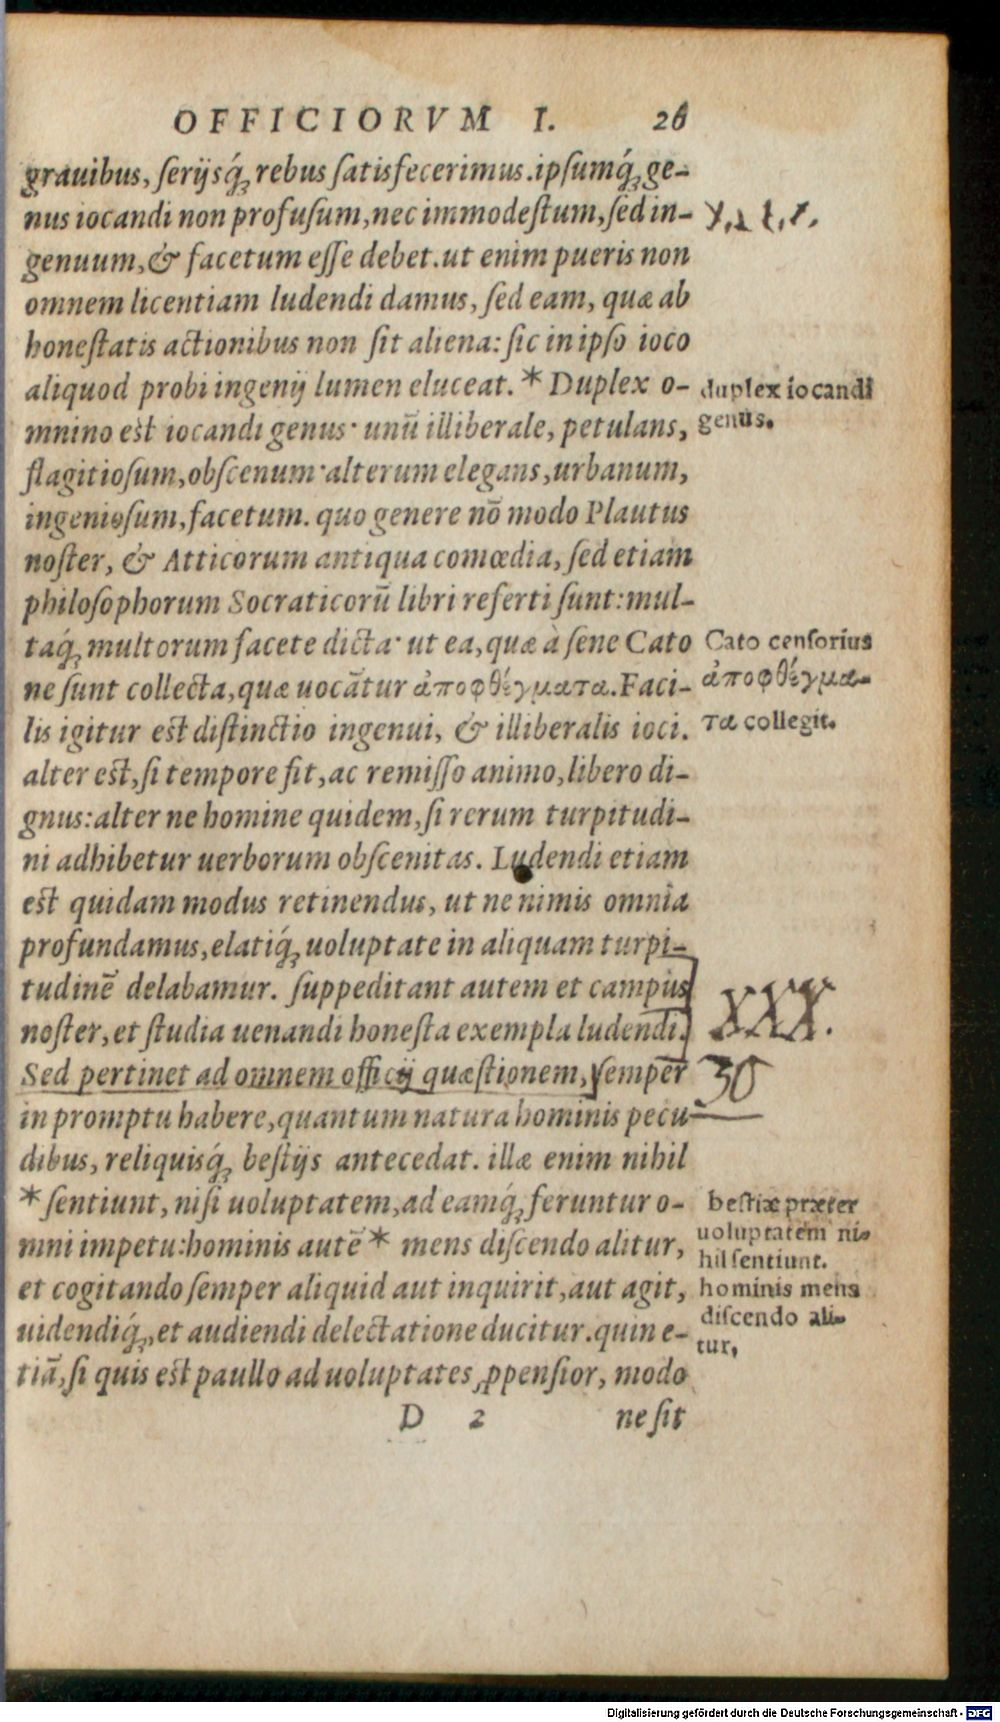 OFFICIORVM I. 26
grauibus, serijsq́; rebus satisfecerimus. ipsumq́; ge-
nus iocandi non profusum, nec immodestum, sed in-
genuum, & facetum esse debet. ut enim pueris non
omnem licentiam ludendi damus, sed eam, quæ ab
honestatis actionibus non sit aliena: sic in ipso ioco
aliquod probi ingenij lumen eluceat. * Duplex o-
duplex iocandi
mnino est iocandi genus· unū illiberale, petulans,
genus.
flagitiosum, obscenum· alterum elegans, urbanum,
ingeniosum, facetum. quo genere nō modo Plautus
noster, & Atticorum antiqua comœdia, sed etiam
philosophorum Socraticorū libri referti sunt: mul-
taq́; multorum facete dicta· ut ea, quæ à sene Cato
Cato censorius
ne sunt collecta, quæ uocātur ἀποφθέγματα. Faci-
ἀποφθέγμα-
lis igitur est distinctio ingenui, & illiberalis ioci.
τα collegit.
alter est, si tempore fit, ac remisso animo, libero di-
gnus: alter ne homine quidem, si rerum turpitudi-
ni adhibetur uerborum obscenitas. Ludendi etiam
est quidam modus retinendus, ut ne nimis omnia
profundamus, elatiq́; uoluptate in aliquam turpi-
tudinē delabamur. suppeditant autem et campus
noster, et studia uenandi honesta exempla ludendi.
XXX.
Sed pertinet ad omnem officij quæstionem, semper
30
in promptu habere, quantum natura hominis pecu-
dibus, reliquisq́; bestijs antecedat. illæ enim nihil
* sentiunt, nisi uoluptatem, ad eamq́; feruntur o-
bestiæ præter
mni impetu: hominis autē * mens discendo alitur,
uoluptatem ni-
hil sentiunt.
et cogitando semper aliquid aut inquirit, aut agit,
hominis mens
uidendiq́;, et audiendi delectatione ducitur. quin e-
discendo ali-
tur.
tiā, si quis est paullo ad uoluptates ꝓpensior, modo
D 2 ne sit
Digitalisierung gefördert durch die Deutsche Forschungsgemeinschaft - DFG